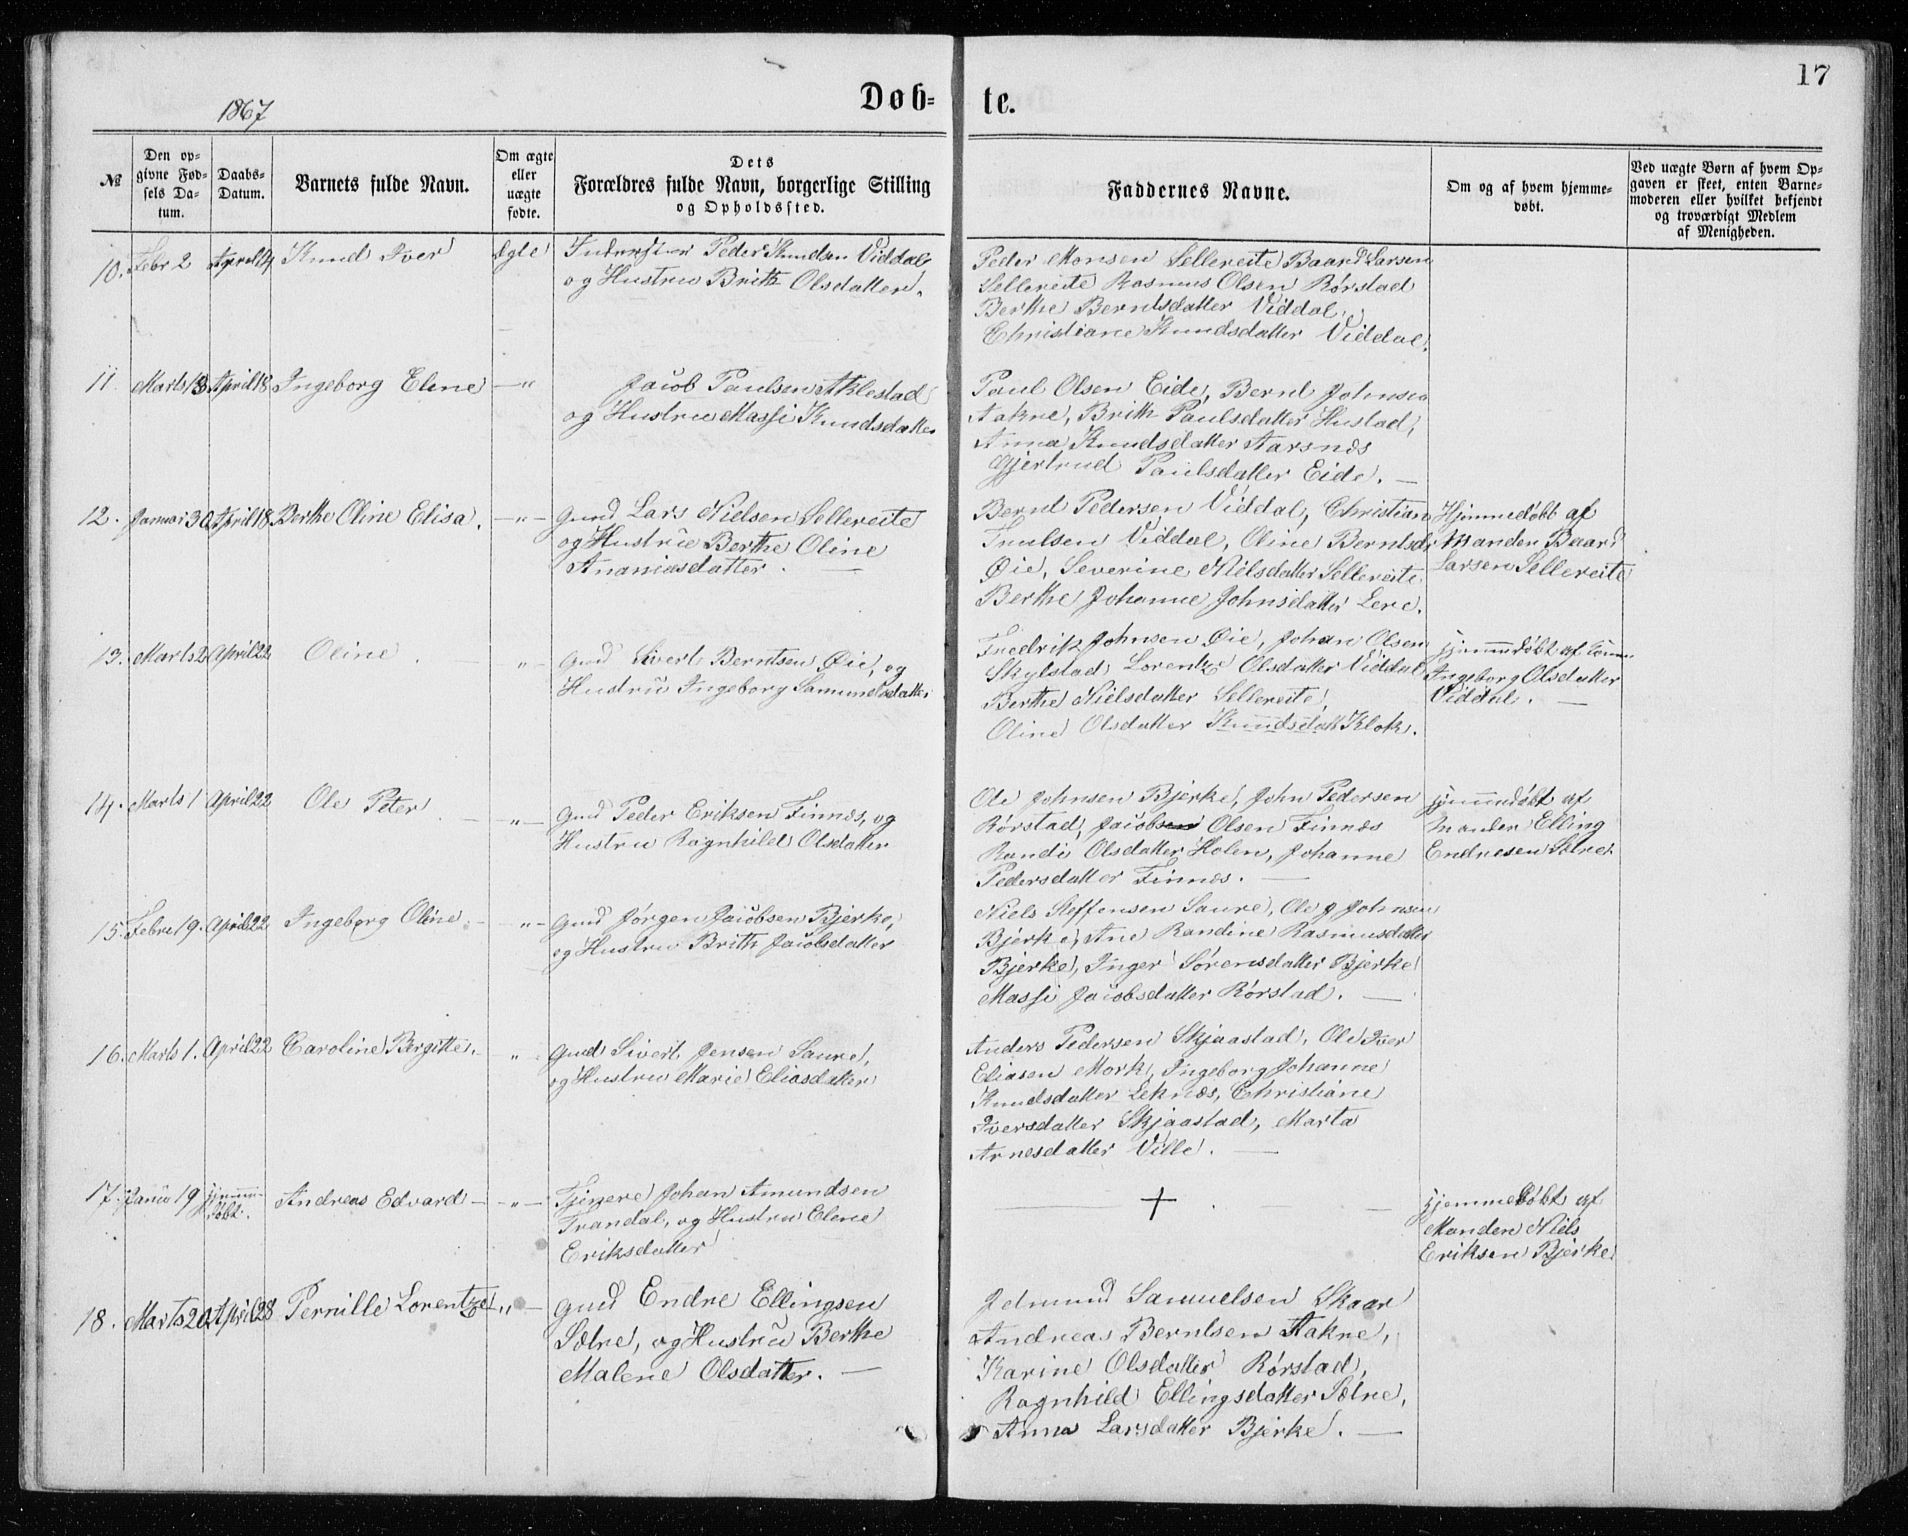 17
1867
Døb-
te.
№
Den op-
givne Fød-
sels Da-
tum.
Daabs-
Datum.
Barnets fulde Navn.
Om ægte
eller
uægte
fødte.
Dets
Forældres fulde Navn, borgerlige Stilling
og Opholdssted.
Faddernes Navne.
Om og af hvem hjemme-
døbt.
Ved uægte Børn af hvem Op-
gaven er skeet, enten Barne-
moderen eller hvilket bekjendt
og troværdigt Medlem
af Menigheden.
10. Febr 2 April 14 Knud Iver Ægte Peder Knudsen Viddal
og Hustru Brith Olsdatter.
Peder Monsen Sellereite Baard Larsen
Sellereite Rasmus Olsen Rørstad
Berthe Berntsdatter Viddal,
Christiane Knudsdatter Viddal.
11. Marts 18 April 18 Ingeborg Eline —"
Jacob Paulsen Aklestad
og Hustru Massi Knudsdatter
Paul Olsen Eide, Bernt Johnsen
Aakre, Brith Paulsdatter Hustad,
Anna Knudsdatter Aarsnes
Gjertrud Paulsdatter Eide. —
12. Januar 30 April 18 Berthe Oline Elisa. —"— Gmd Lars Nielsen Sellereite
og Hustru Berthe Oline
Ananiasdatter. —
Bernt Pedersen Viddal, Christian
Knudsen Viddal, Oline Berntsdr
Øie, Severine Nielsdatter Sellereite
Berthe Johanne Johnsdatter Lere.
Hjemmedøbt af
Manden Baard
Larsen Sellereite
13. Marts 2 April 22 Oline. — "— Gmd Sivert Berntsen Øie, og
Hustru Ingeborg Samuelsdatter
Fredrik Johnsen Øie, Johan Olsen
Skylstad, Lorentze Olsdatter Viddal
Berthe Nielsdatter Sellereite,
Oline Olsdatter Knudsdatt Klok.
hjemmedøbt af
Ingeborg Olsdatter
Viddal. —
14. Marts 1 April 22 Ole Peter. — "— Gmd Peder Eriksen Finnes, og
Hustru Ragnhild Olsdatter
Ole Johnsen Bjerke, John Pedersen
Rørstad, Jacobsen Olsen Finnes
Randi Olsdatter Holen, Johanne
Pedersdatter Finnes. —
hjemmedøbt af
Manden Elling
Endresen Sætre.
15. Febru 19. April 22 Ingeborg Oline. — "— Gmd Jørgen Jacobsen Bjerke,
og Hustru Brith Jacobsdatter
Niels Steffensen Saure, Ole J Johnsen
Bjerke, Ane Randine Rasmusdatter
Bjerke, Inger Sørensdatter Bjerke
Massi Jacobsdatter Rørstad. —
16. Marts 1. April 22 Caroline Bergitte. " Gmd Sivert Jensen Saure,
og Hustru Marie Eliasdatter
Anders Pedersen Skjaastad, Ole Iver
Eliasen Mork, Ingeborg Johanne
Knudsdatter Leknes, Christiane
Iversdatter Skjaastad, Marta
Arnesdatter Ville. —
17. Janu 19 hjemme-
døbt. Andreas Edvard — "— Johan Amundsen
Trandal, og Hustru Elene
Eriksdatter
+
hjemmedøbt af
Manden Niels
Eriksen Bjerke
18. Marts 20 April 28 Pernille Lorentze —"— Gmd Endre Ellingsen
Sætre, og Hustru Berthe
Malene Olsdatter. —
Edmund Samuelsen Skaar
Andreas Berntsen Aakre,
Karine Olsdatter Rørstad,
Ragnhild Ellingsdatter Sætre,
Anna Larsdatter Bjerke. —